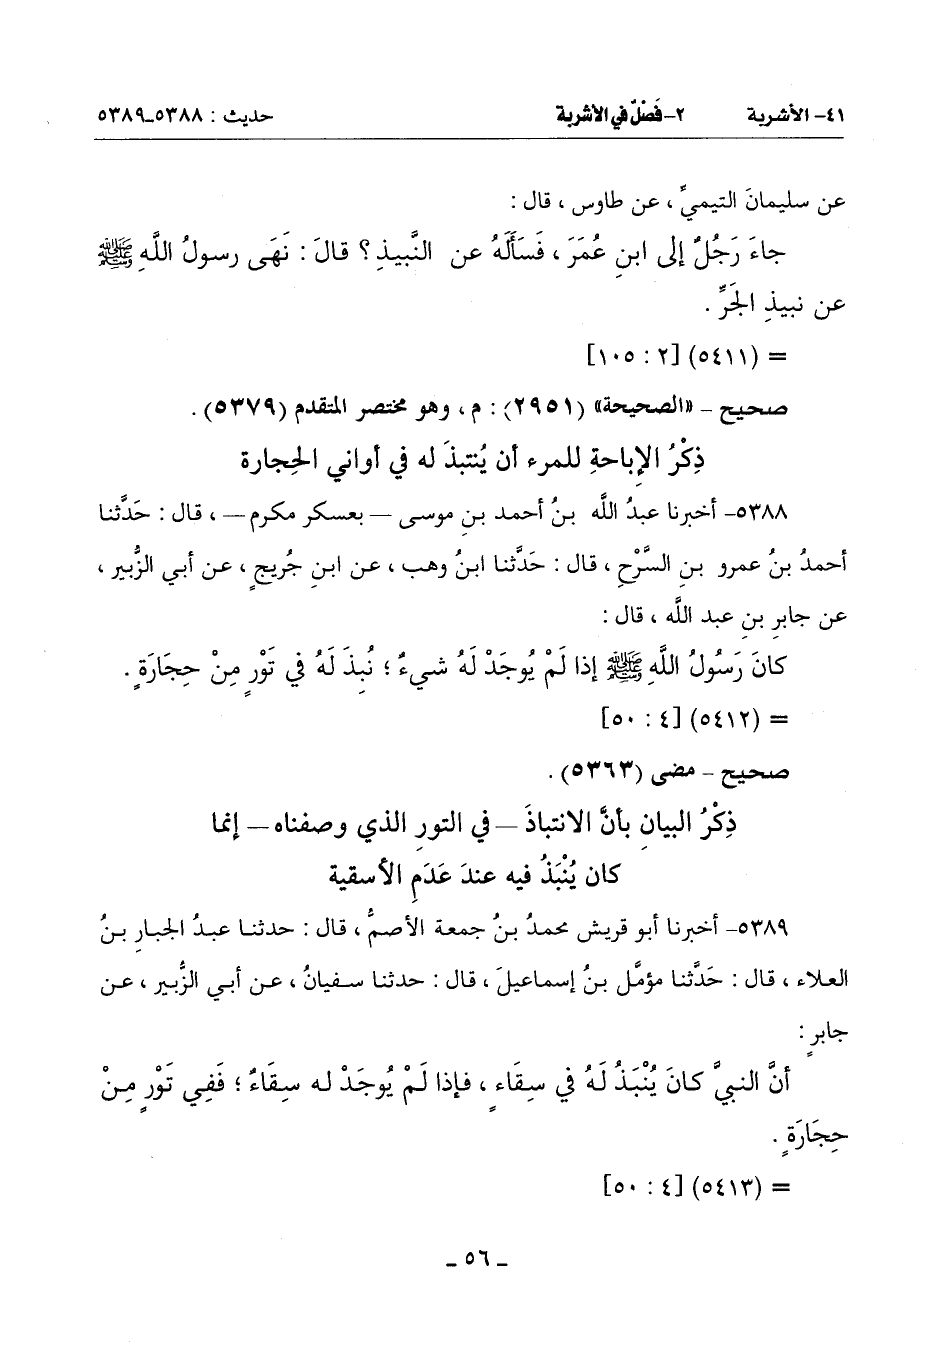 ٤١- الأشربة ٢- فَصْلٌ في الأشربة حديث : ٥٣٨٨-٥٣٨٩
عن سليمانَ التيميِّ ، عن طاوس ، قال :
جاءَ رَجُلٌ إلى ابنِ عُمَرَ ، فَسَأَلَهُ عن النَّبيذِ ؟ قالَ : نَهَى رسولُ اللَّهِ ﷺ
عن نبيذِ الجَرِّ .
= (٥٤١١) [٢ : ١٠٥]
صحيح - «الصحيحة» (٢٩٥١) : م ، وهو مختصر المتقدم (٥٣٧٩) .
ذِكْرُ الإباحةِ للمرء أن يُنتبذَ له في أواني الحِجارة
٥٣٨٨- أخبرنا عبدُ اللَّه بنُ أحمد بنِ موسى – بعسكر مكرم – ، قال : حَدَّثنا
أحمدُ بنُ عمرو بنِ السَّرْحِ ، قال : حَدَّثنا ابنُ وهب ، عن ابنِ جُريجٍ ، عن أبي الزُّبير ،
عن جابرِ بنِ عبد اللَّه ، قال :
كانَ رَسُولُ اللَّهِ ﷺ إذا لَمْ يُوجَدْ لَهُ شيءٌ ؛ نُبِذَ لَهُ في تَوْرٍ مِنْ حِجَارَةٍ .
= (٥٤١٢) [٤ : ٥٠]
صحيح - مضى (٥٣٦٣) .
ذِكْرُ البيانِ بأنَّ الانتباذَ – في التورِ الذي وصفناه – إنما
كان يُنْبَذُ فيه عندَ عَدَمِ الأسقية
٥٣٨٩- أخبرنا أبو قريش محمدُ بنُ جمعة الأصمُّ ، قال : حدثنا عبدُ الجبارِ بنُ
العلاء ، قال : حَدَّثنا مؤمَّل بنُ إسماعيلَ ، قال : حدثنا سفيانُ ، عن أبي الزُّبير ، عن
جابرٍ :
أنَّ النبيَّ كانَ يُنْبَذُ لَهُ في سِقَاءٍ ، فإذا لَمْ يُوجَدْ له سِقَاءٌ ؛ فَفِي تَوْرٍ مِنْ
حِجَارَةٍ .
= (٥٤١٣) [٤ : ٥٠]
- ٥٦ -